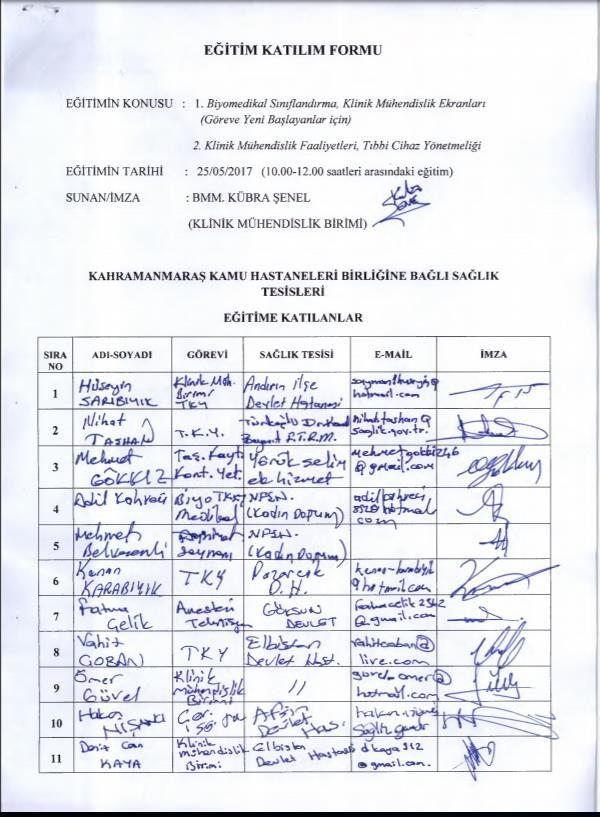 EĞİTİM KATILIM FORMU
EĞİTİMİN KONUSU : 1. Biyomedikal Sınıflandırma, Klinik Mühendislik Ekranları
(Göreve Yeni Başlayanlar için)
2. Klinik Mühendislik Faaliyetleri, Tıbbi Cihaz Yönetmeliği
EĞİTİMİN TARİHİ : 25/05/2017 (10.00-12.00 saatleri arasındaki eğitim)
SUNAN/İMZA : BMM. KÜBRA ŞENEL
(KLİNİK MÜHENDİSLİK BİRİMİ)
KAHRAMANMARAŞ KAMU HASTANELERİ BİRLİĞİNE BAĞLI SAĞLIK
TESİSLERİ
EĞİTİME KATILANLAR
SIRA NO ADI-SOYADI GÖREVİ SAĞLIK TESİSİ E-MAİL İMZA
1 Hüseyin SARIBIYIK Klinik Müh. Birimi TKY Andırın İlçe Devlet Hastanesi hotmail.com
2 Nihat TAŞHAN T.K.Y. Türkoğlu F.T.R.M. nihat.tashan@ saglik.gov.tr.
3 Mehmet GÖKKIZ Taş. Kayt. Kont. Yet. Yörük selim ek hizmet @gmail.com
4 Adil TKY (Kadın Doğum) hotmail com
5 Mehmet (Kadın Doğum)
6 Kenan KARABIYIK TKY Pazarcık D.H. @hotmail.com
7 Fatma Çelik Anestezi Teknisyen GÖKSUN DEVLET @gmail.com
8 Vahit ÇOBAN TKY Elbistan Devlet Hast. vahitcoban@ live.com
9 Ömer Güvel Klinik mühendislik Birimi // hotmail.com
10 Hakan Afşin Devlet Has.
11 KAYA Klinik mühendislik Birimi Elbistan Devlet Hastanesi dkaya312 @gmail.com.